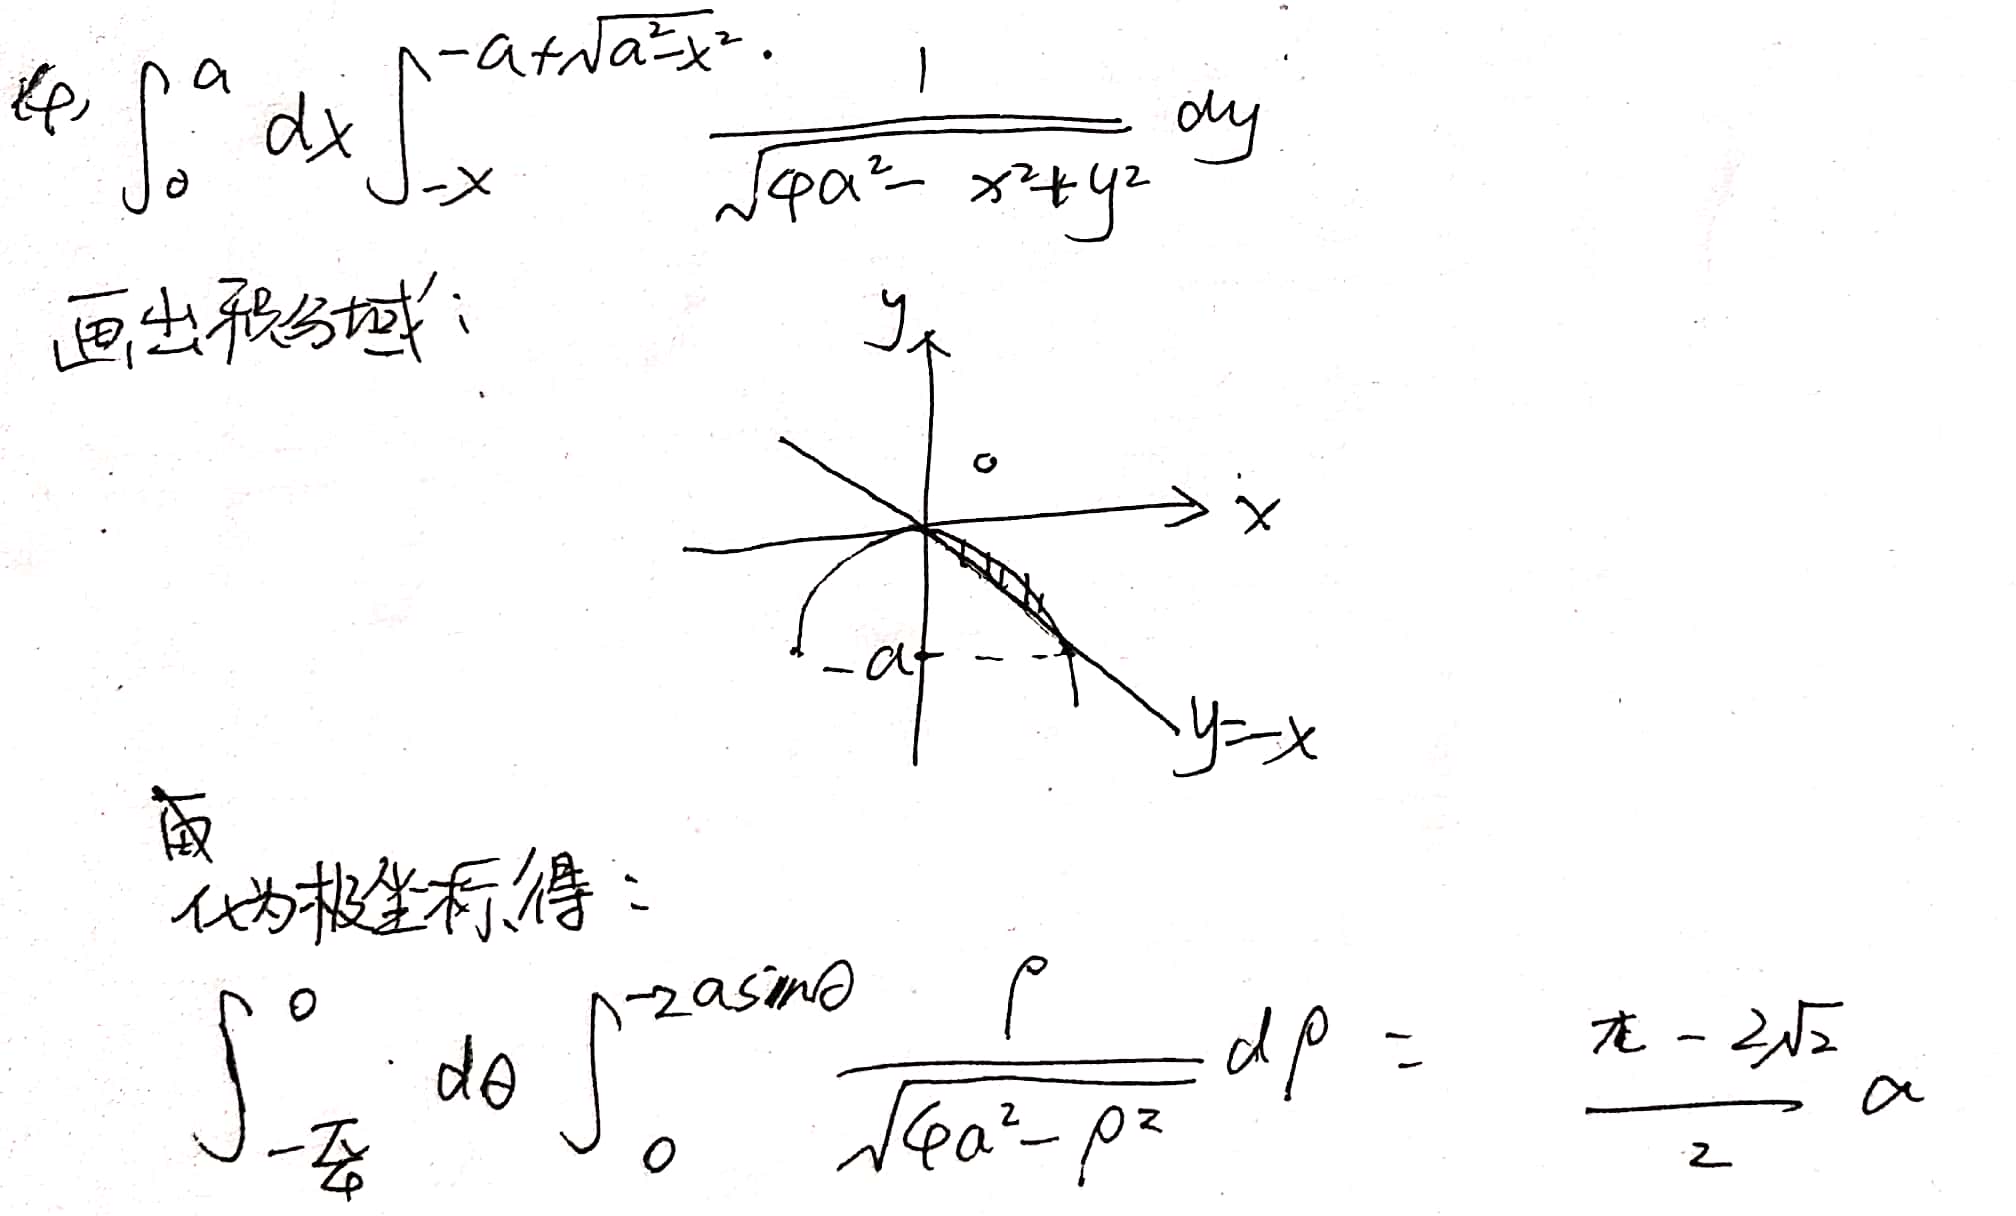 4, ∫₀ᵃ dx ∫₋ₓ^(-a+√(a²-x²)) 1/√(4a²- x²+y²) dy
画出积分域:
y
o
x
-a
y=-x
化为极坐标得:
∫_(-π/4)^0 dθ ∫₀^(-2asinθ) ρ/√(4a²-ρ²) dρ = (π-2√2)/2 a